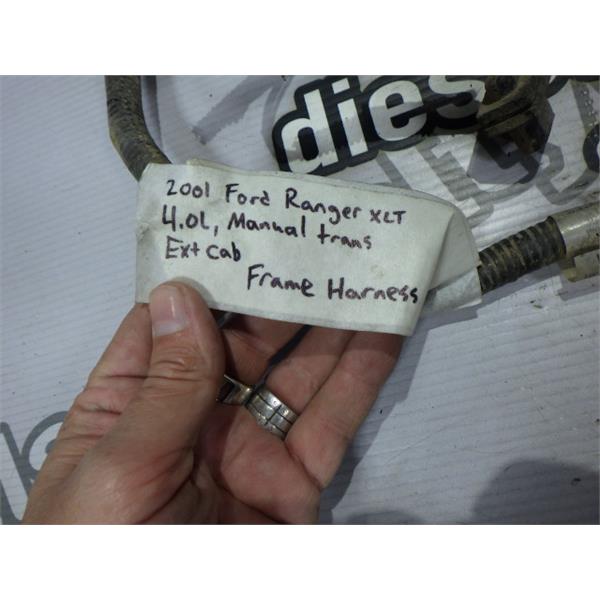 dies
2001 Ford Ranger XLT
4.0L, Manual trans
Ext Cab
Frame Harness